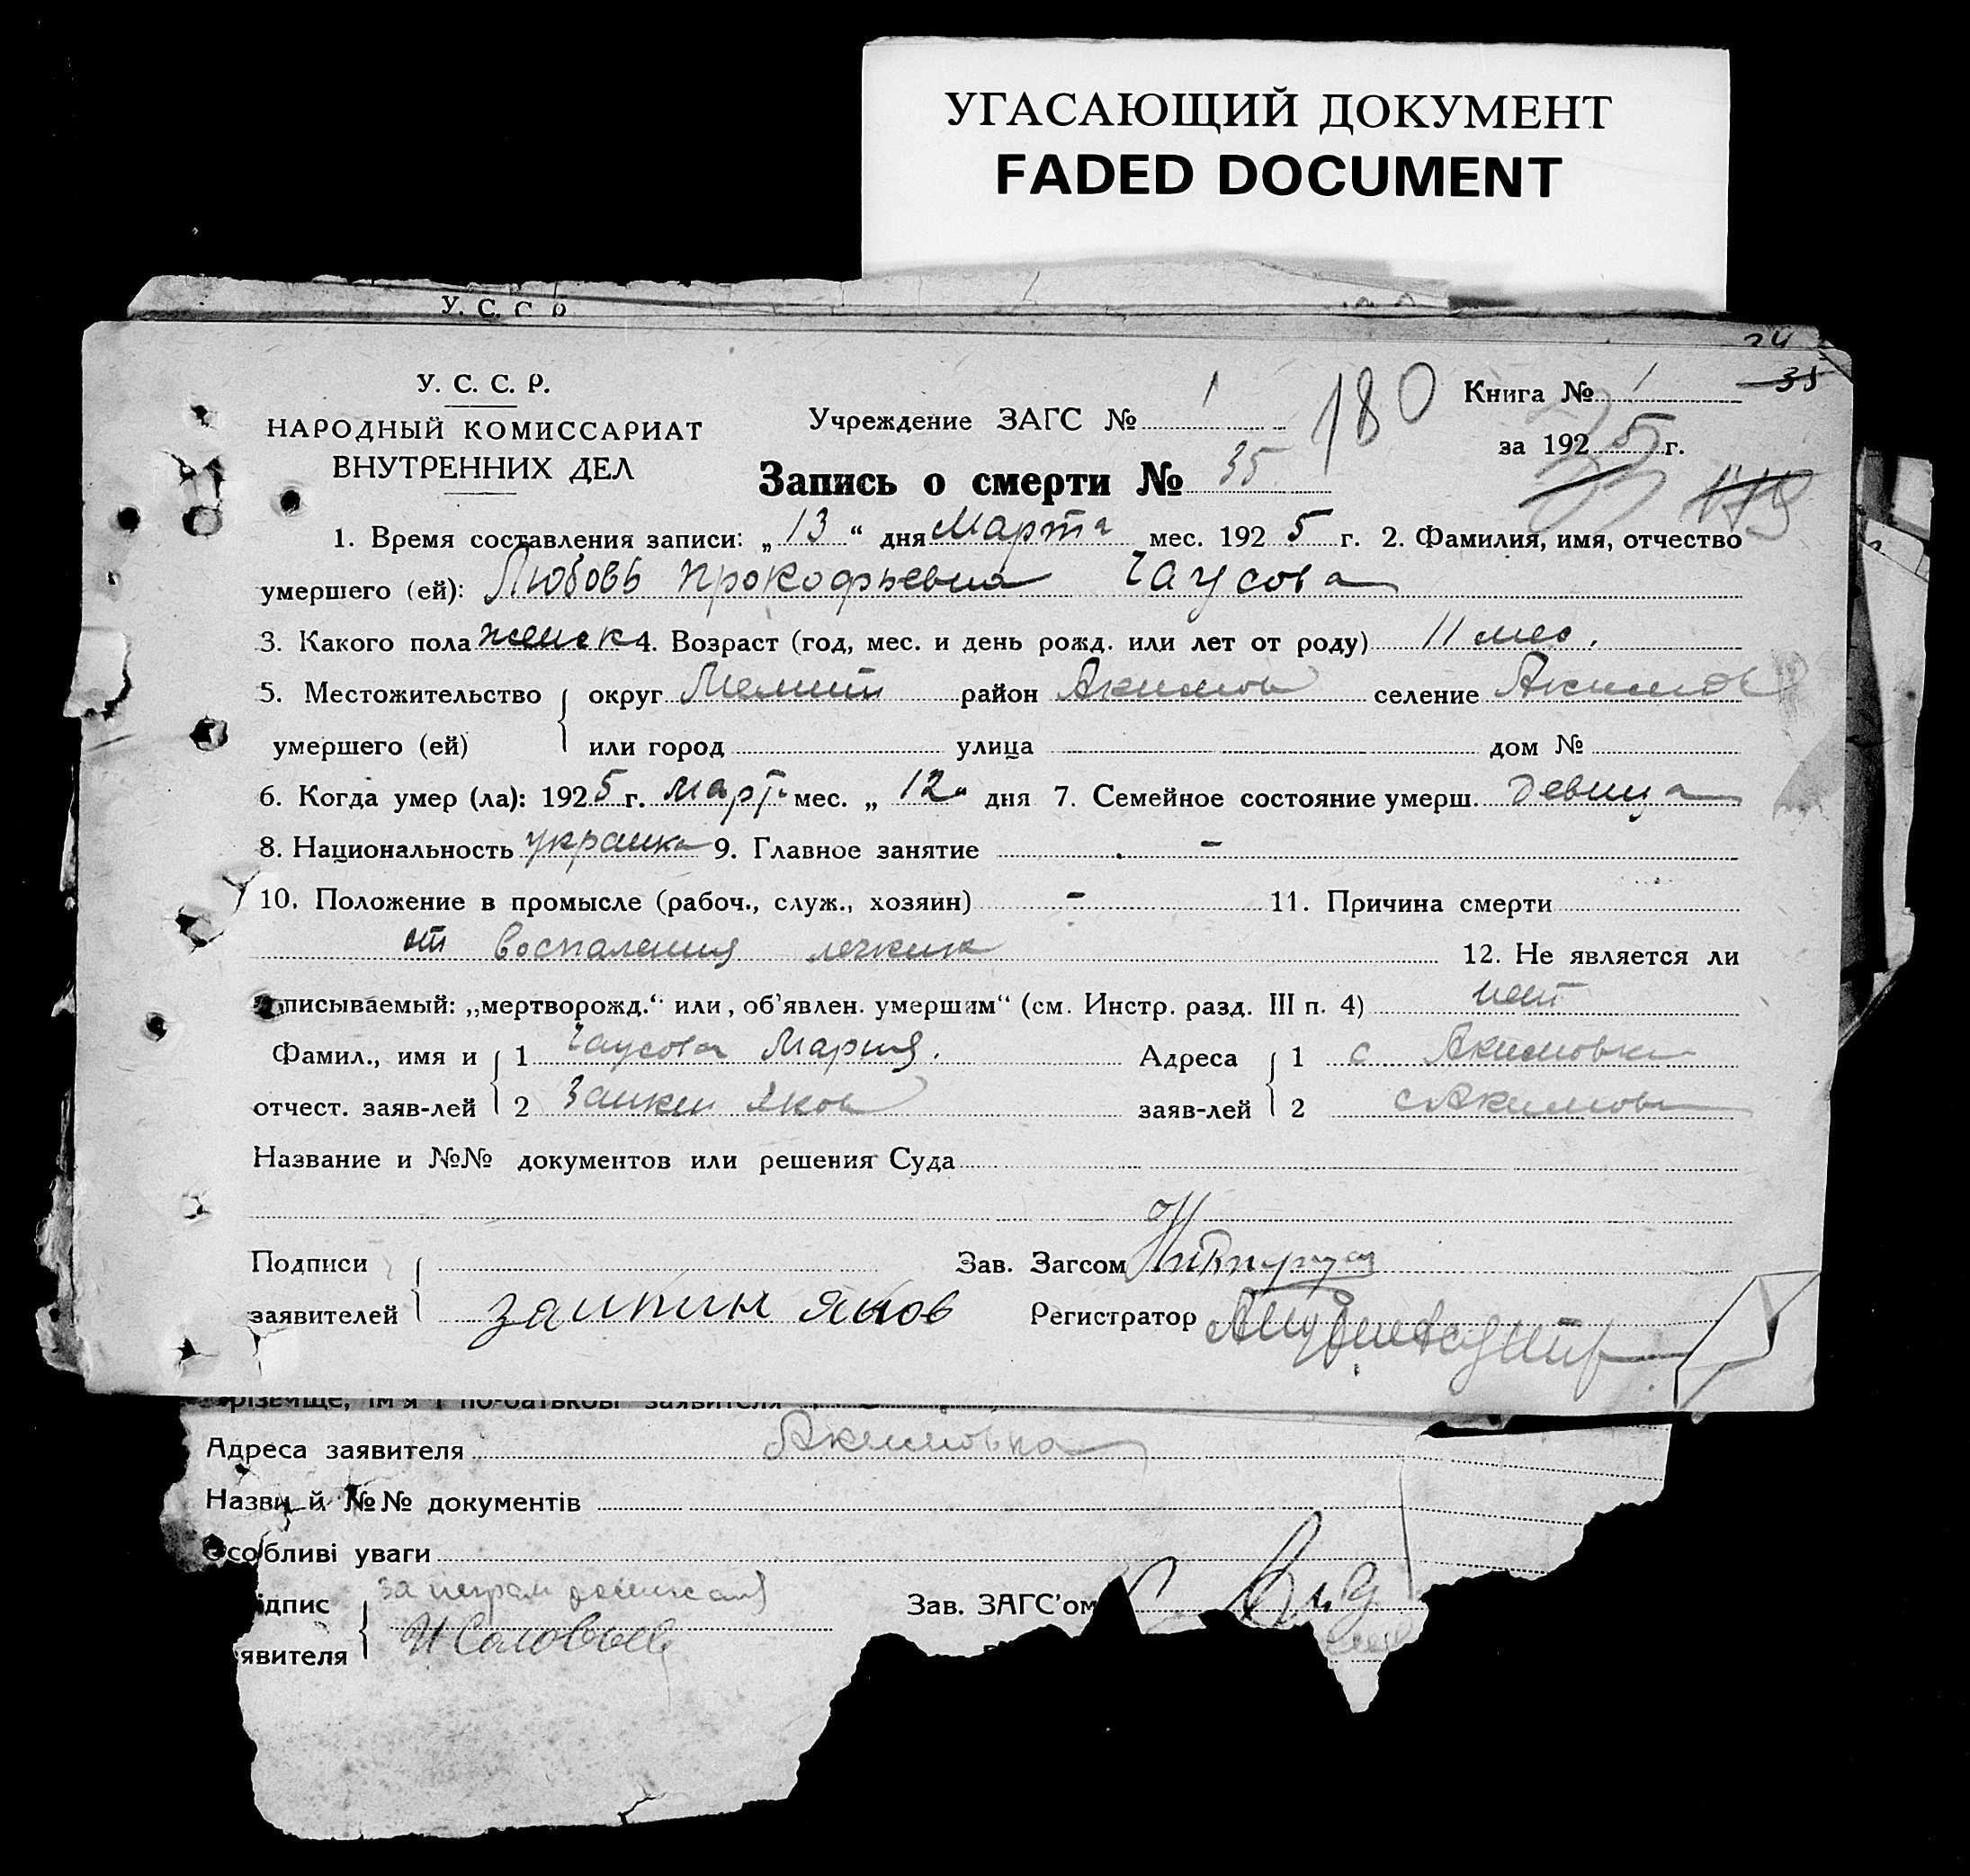 УГАСАЮЩИЙ ДОКУМЕНТ
FADED DOCUMENT
У. С. С. Р.
24
У. С. С. Р.
НАРОДНЫЙ КОМИССАРИАТ
ВНУТРЕННИХ ДЕЛ
Учреждение ЗАГС № 1
180
Книга № 1
35
за 1925 г.
Запись о смерти № 35
1. Время составления записи: „ 13 “ дня Марта мес. 192 5 г. 2. Фамилия, имя, отчество
умершего (ей): Любовь Прокофьевна Чаусова
3. Какого пола женск 4. Возраст (год, мес. и день рожд. или лет от роду) 11 мес.
5. Местожительство округ Мелит район Акимов селение Акимов
умершего (ей) или город улица дом №
6. Когда умер (ла): 1925 г. март. мес. „ 12 “ дня 7. Семейное состояние умерш. девица
8. Национальность украинка 9. Главное занятие -
10. Положение в промысле (рабоч., служ., хозяин) - 11. Причина смерти
от воспаления легких 12. Не является ли
писываемый: „мертворожд.“ или „об'явлен. умершим“ (см. Инстр. разд. III п. 4) нет
Фамил., имя и 1 Чаусова Мария. Адреса 1 с Акимовка
отчест. заяв-лей 2 Заикин Яков заяв-лей 2 с Акимовка
Название и №№ документов или решения Суда
Подписи Зав. Загсом
заявителей заикин яков Регистратор
різвище, ім'я і по-батькові заявителя
Адреса заявителя Акимовка
Назви й №№ документів
Особливі уваги
ідпис за неграм Зав. ЗАГС'ом
явителя И Соловьев